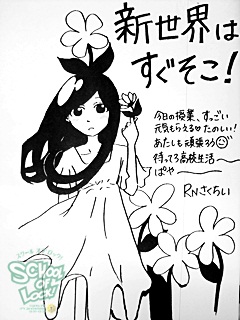 新世界は
すぐそこ！
今日の授業、すっごい
元気もらえる♡たのしい！
あたしも頑張ろう
待ってろ高校生活
ぱや
RNさくらい
SCHOOL OF LOCK!